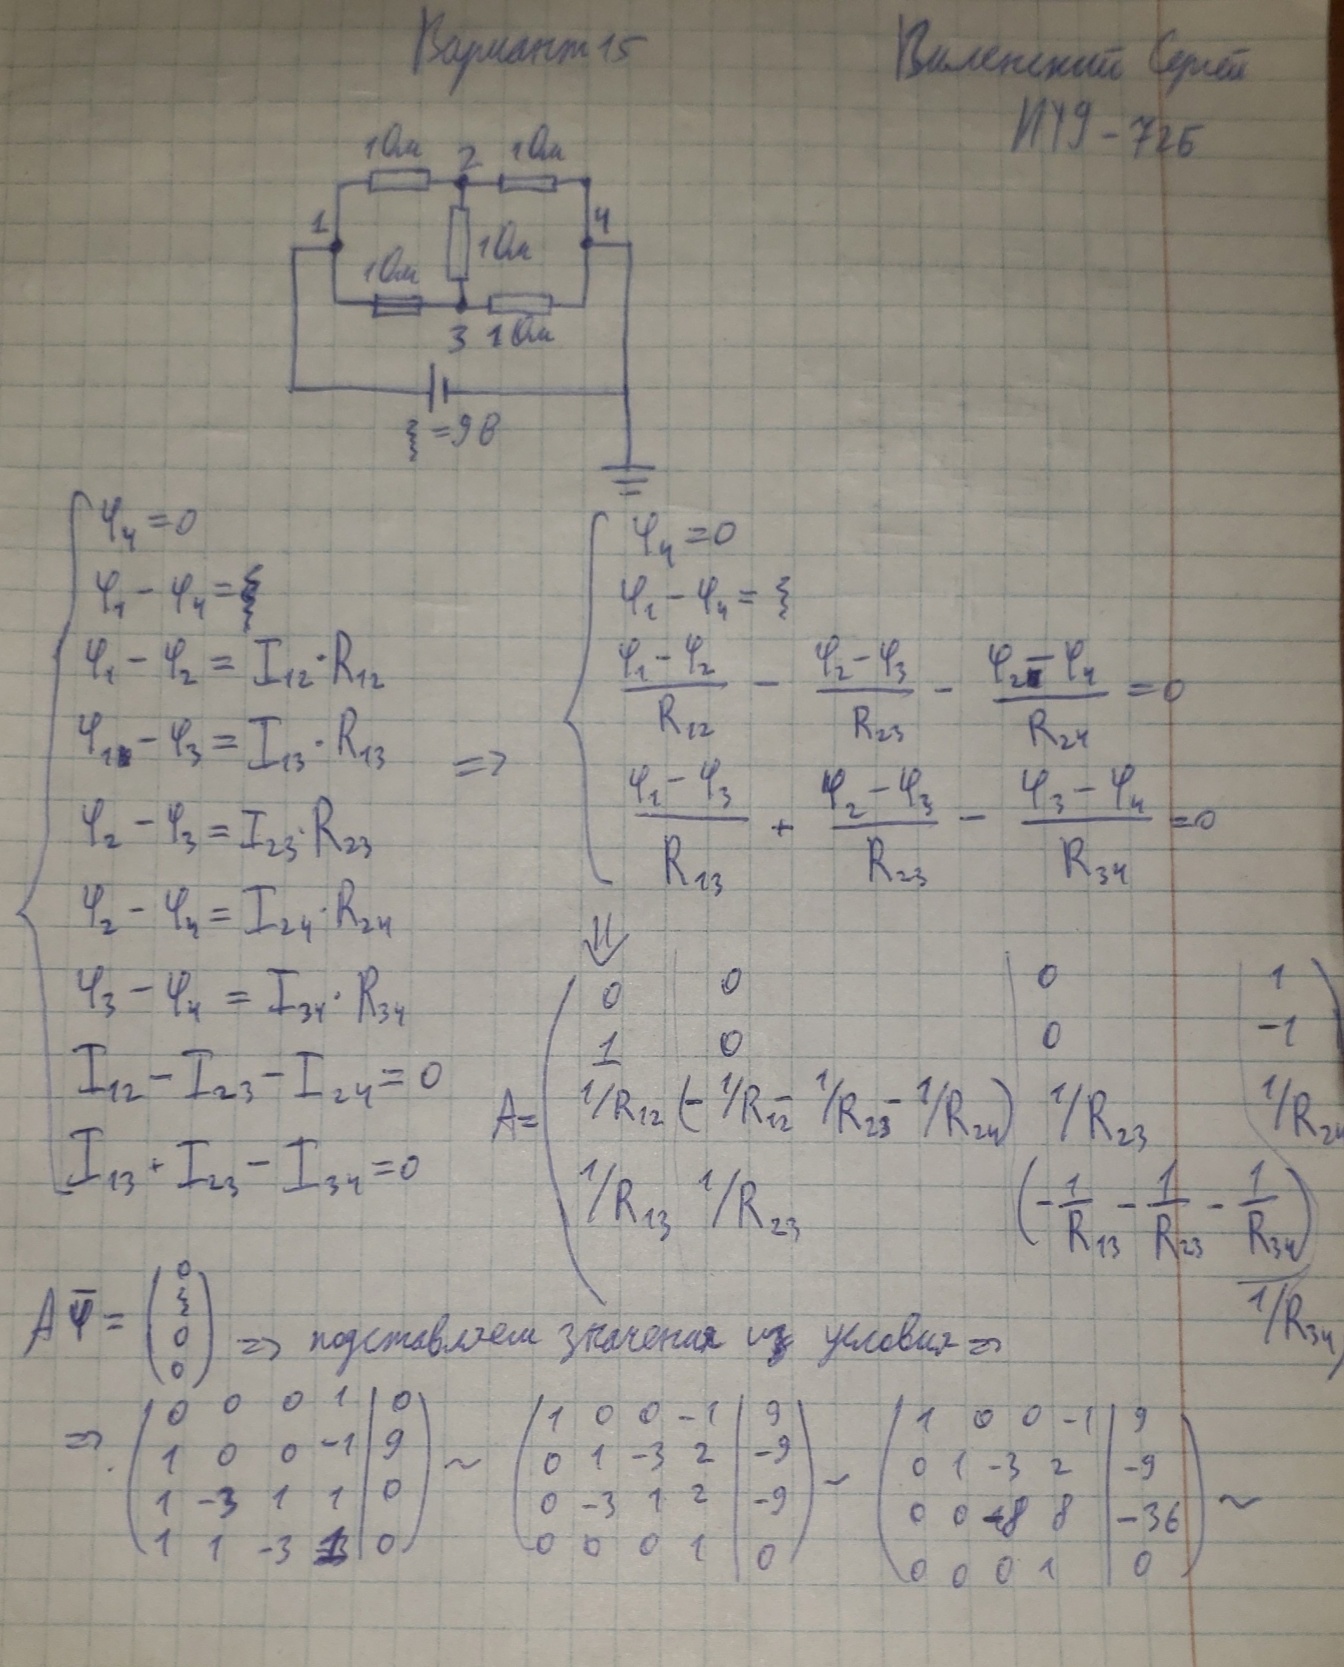 Вариант 15
Виленский Сергей
ИУ9-72Б
1 Ом 2 1 Ом
1 4
1 Ом
1 Ом
3 1 Ом
ξ = 9 В
φ₄ = 0
φ₁ - φ₄ = ξ
φ₁ - φ₂ = I₁₂·R₁₂
φ₁ - φ₃ = I₁₃·R₁₃
φ₂ - φ₃ = I₂₃·R₂₃
φ₂ - φ₄ = I₂₄·R₂₄
φ₃ - φ₄ = I₃₄·R₃₄
I₁₂ - I₂₃ - I₂₄ = 0
I₁₃ + I₂₃ - I₃₄ = 0
=>
φ₄ = 0
φ₁ - φ₄ = ξ
(φ₁ - φ₂)/R₁₂ - (φ₂ - φ₃)/R₂₃ - (φ₂ - φ₄)/R₂₄ = 0
(φ₁ - φ₃)/R₁₃ + (φ₂ - φ₃)/R₂₃ - (φ₃ - φ₄)/R₃₄ = 0
⇓
0 0 0 1
1 0 0 -1
A = 1/R₁₂ (- 1/R₁₂ - 1/R₂₃ - 1/R₂₄) 1/R₂₃ 1/R₂₄
1/R₁₃ 1/R₂₃ (- 1/R₁₃ - 1/R₂₃ - 1/R₃₄) 1/R₃₄
Aφ̄ = (0 ξ 0 0) => подставляем значения из условия =>
=> (0 0 0 1 | 0) ~ (1 0 0 -1 | 9) ~ (1 0 0 -1 | 9) ~
1 0 0 -1 | 9 0 1 -3 2 | -9 0 1 -3 2 | -9
1 -3 1 1 | 0 0 -3 1 2 | -9 0 0 -8 8 | -36
1 1 -3 1 | 0 0 0 0 1 | 0 0 0 0 1 | 0